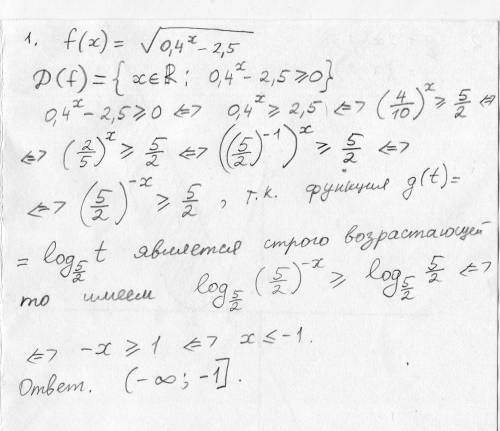 1. f(x) = √(0,4^x − 2,5)
D(f) = { x ∈ ℝ ; 0,4^x − 2,5 ⩾ 0 }
0,4^x − 2,5 ⩾ 0 ⇔ 0,4^x ⩾ 2,5 ⇔ (4/10)^x ⩾ 5/2 ⇔
⇔ (2/5)^x ⩾ 5/2 ⇔ ((5/2)^−1)^x ⩾ 5/2 ⇔
⇔ (5/2)^−x ⩾ 5/2 , т.к. функция g(t) =
= log_5/2 t является строго возрастающей
то имеем log_5/2 (5/2)^−x ⩾ log_5/2 5/2 ⇔
⇔ −x ⩾ 1 ⇔ x ≤ −1.
Ответ. (−∞; −1].